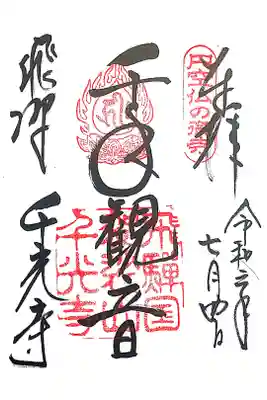 奉拝
円空仏の寺
令和二年
七月四日
千手觀音
飛騨国
袈裟山
千光寺
飛騨
千光寺